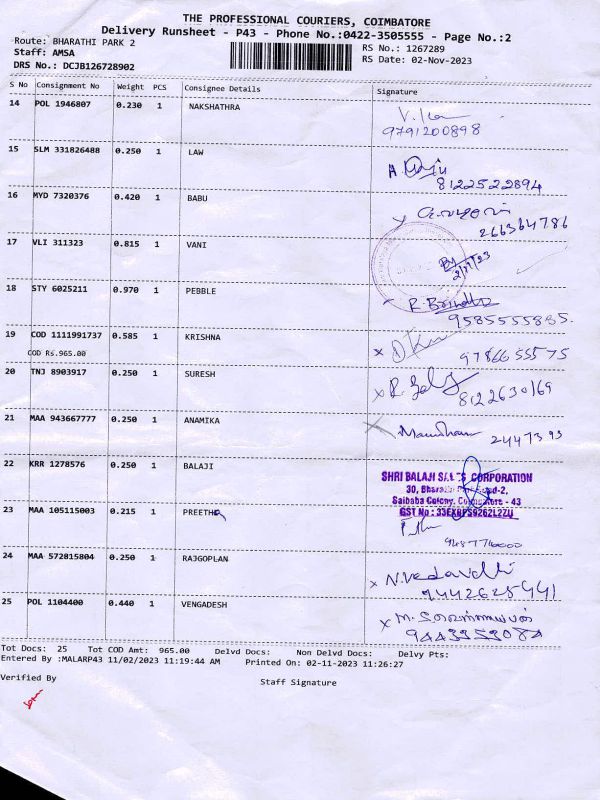 THE PROFESSIONAL COURIERS, COIMBATORE
Delivery Runsheet - P43 - Phone No.:0422-3505555 - Page No.:2
Route: BHARATHI PARK 2
Staff: AMSA
DRS No.: DCJB126728902
RS No.: 1267289
RS Date: 02-Nov-2023
S No Consignment No Weight PCS Consignee Details Signature
14 POL 1946807 0.230 1 NAKSHATHRA
9791200898
15 SLM 331826488 0.250 1 LAW
A. Raju
8122522894
16 MYD 7320376 0.420 1 BABU
266364786
17 VLI 311323 0.815 1 VANI
18 STY 6025211 0.970 1 PEBBLE
9585555885.
19 COD 1111991737 0.585 1 KRISHNA
COD Rs.965.00
9786655575
20 TNJ 8903917 0.250 1 SURESH
8122630169
21 MAA 943667777 0.250 1 ANAMIKA
2447393
22 KRR 1278576 0.250 1 BALAJI
SHRI BALAJI SALES CORPORATION
Saibaba Colony, Coimbatore - 43
23 MAA 105115003 0.215 1 PREETHA
24 MAA 572815804 0.250 1 RAJGOPLAN
N. Vedavalli
9442625441
25 POL 1104400 0.440 1 VENGADESH
Tot Docs: 25 Tot COD Amt: 965.00 Delvd Docs: Non Delvd Docs: Delvy Pts:
Entered By :MALARP43 11/02/2023 11:19:44 AM Printed On: 02-11-2023 11:26:27
Verified By
Staff Signature